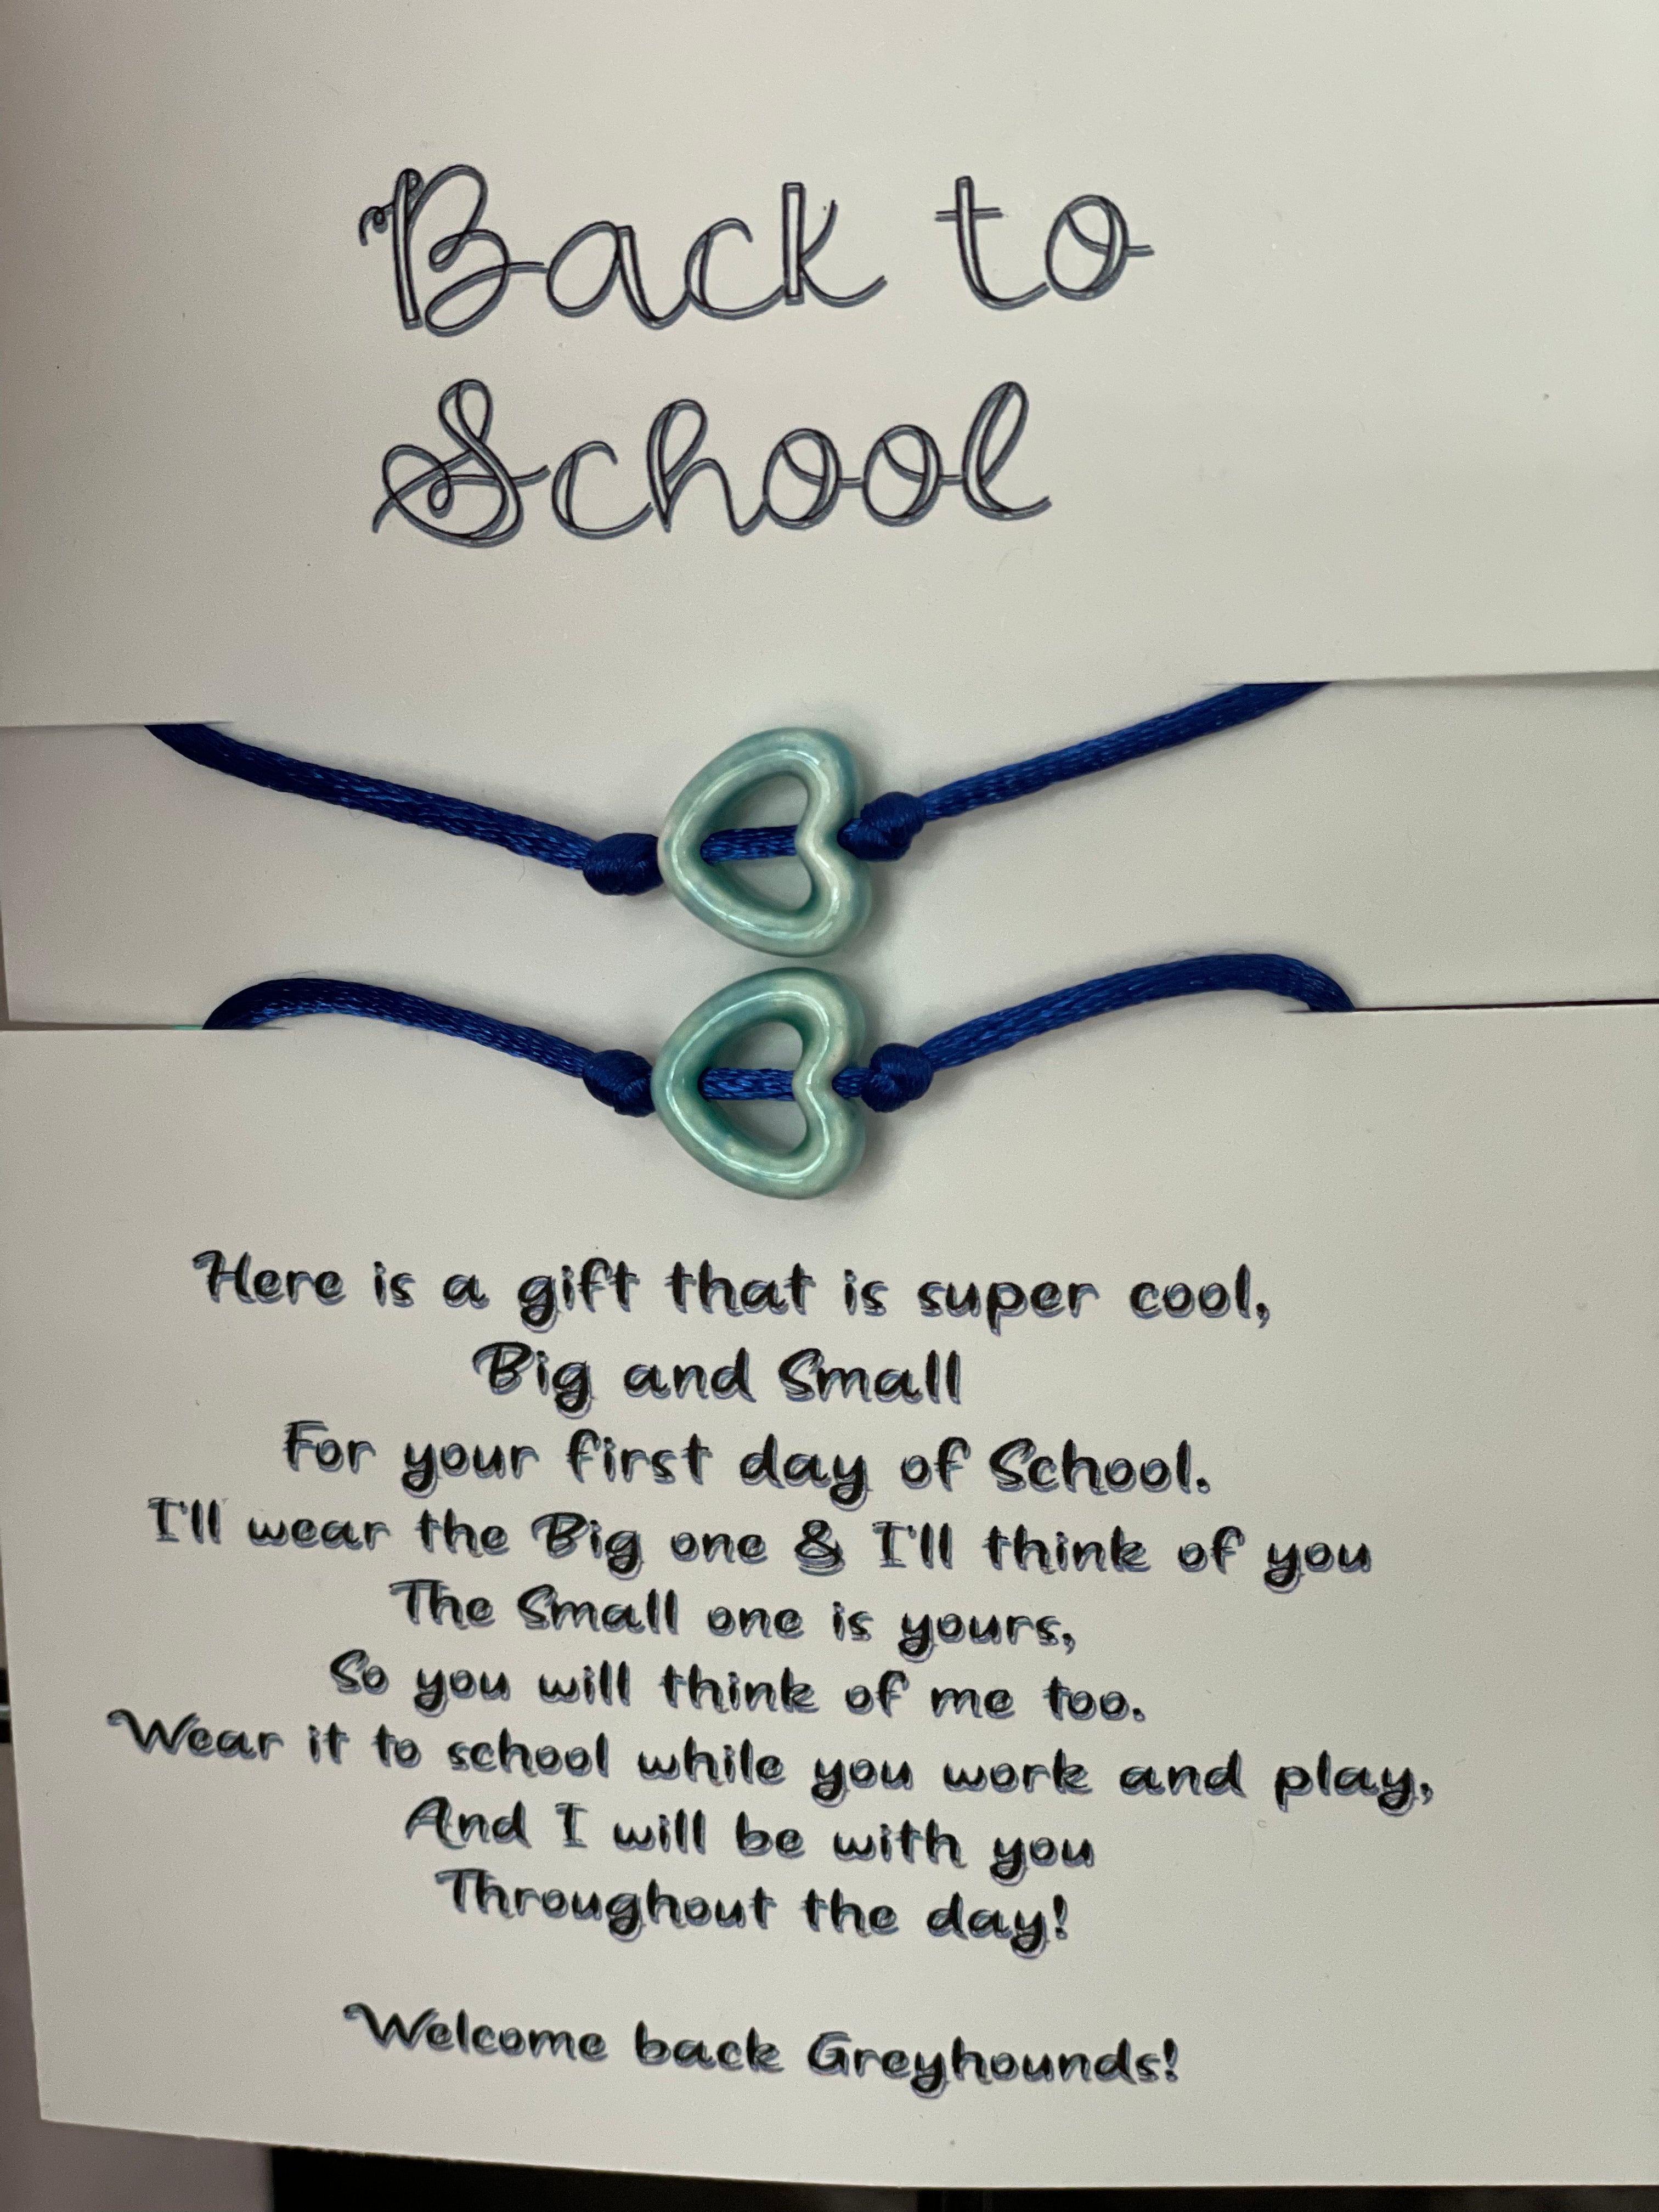 Back to
School
Here is a gift that is super cool,
Big and Small
For your first day of School.
I'll wear the Big one & I'll think of you
The Small one is yours,
So you will think of me too.
Wear it to school while you work and play,
And I will be with you
Throughout the day!
Welcome back Greyhounds!